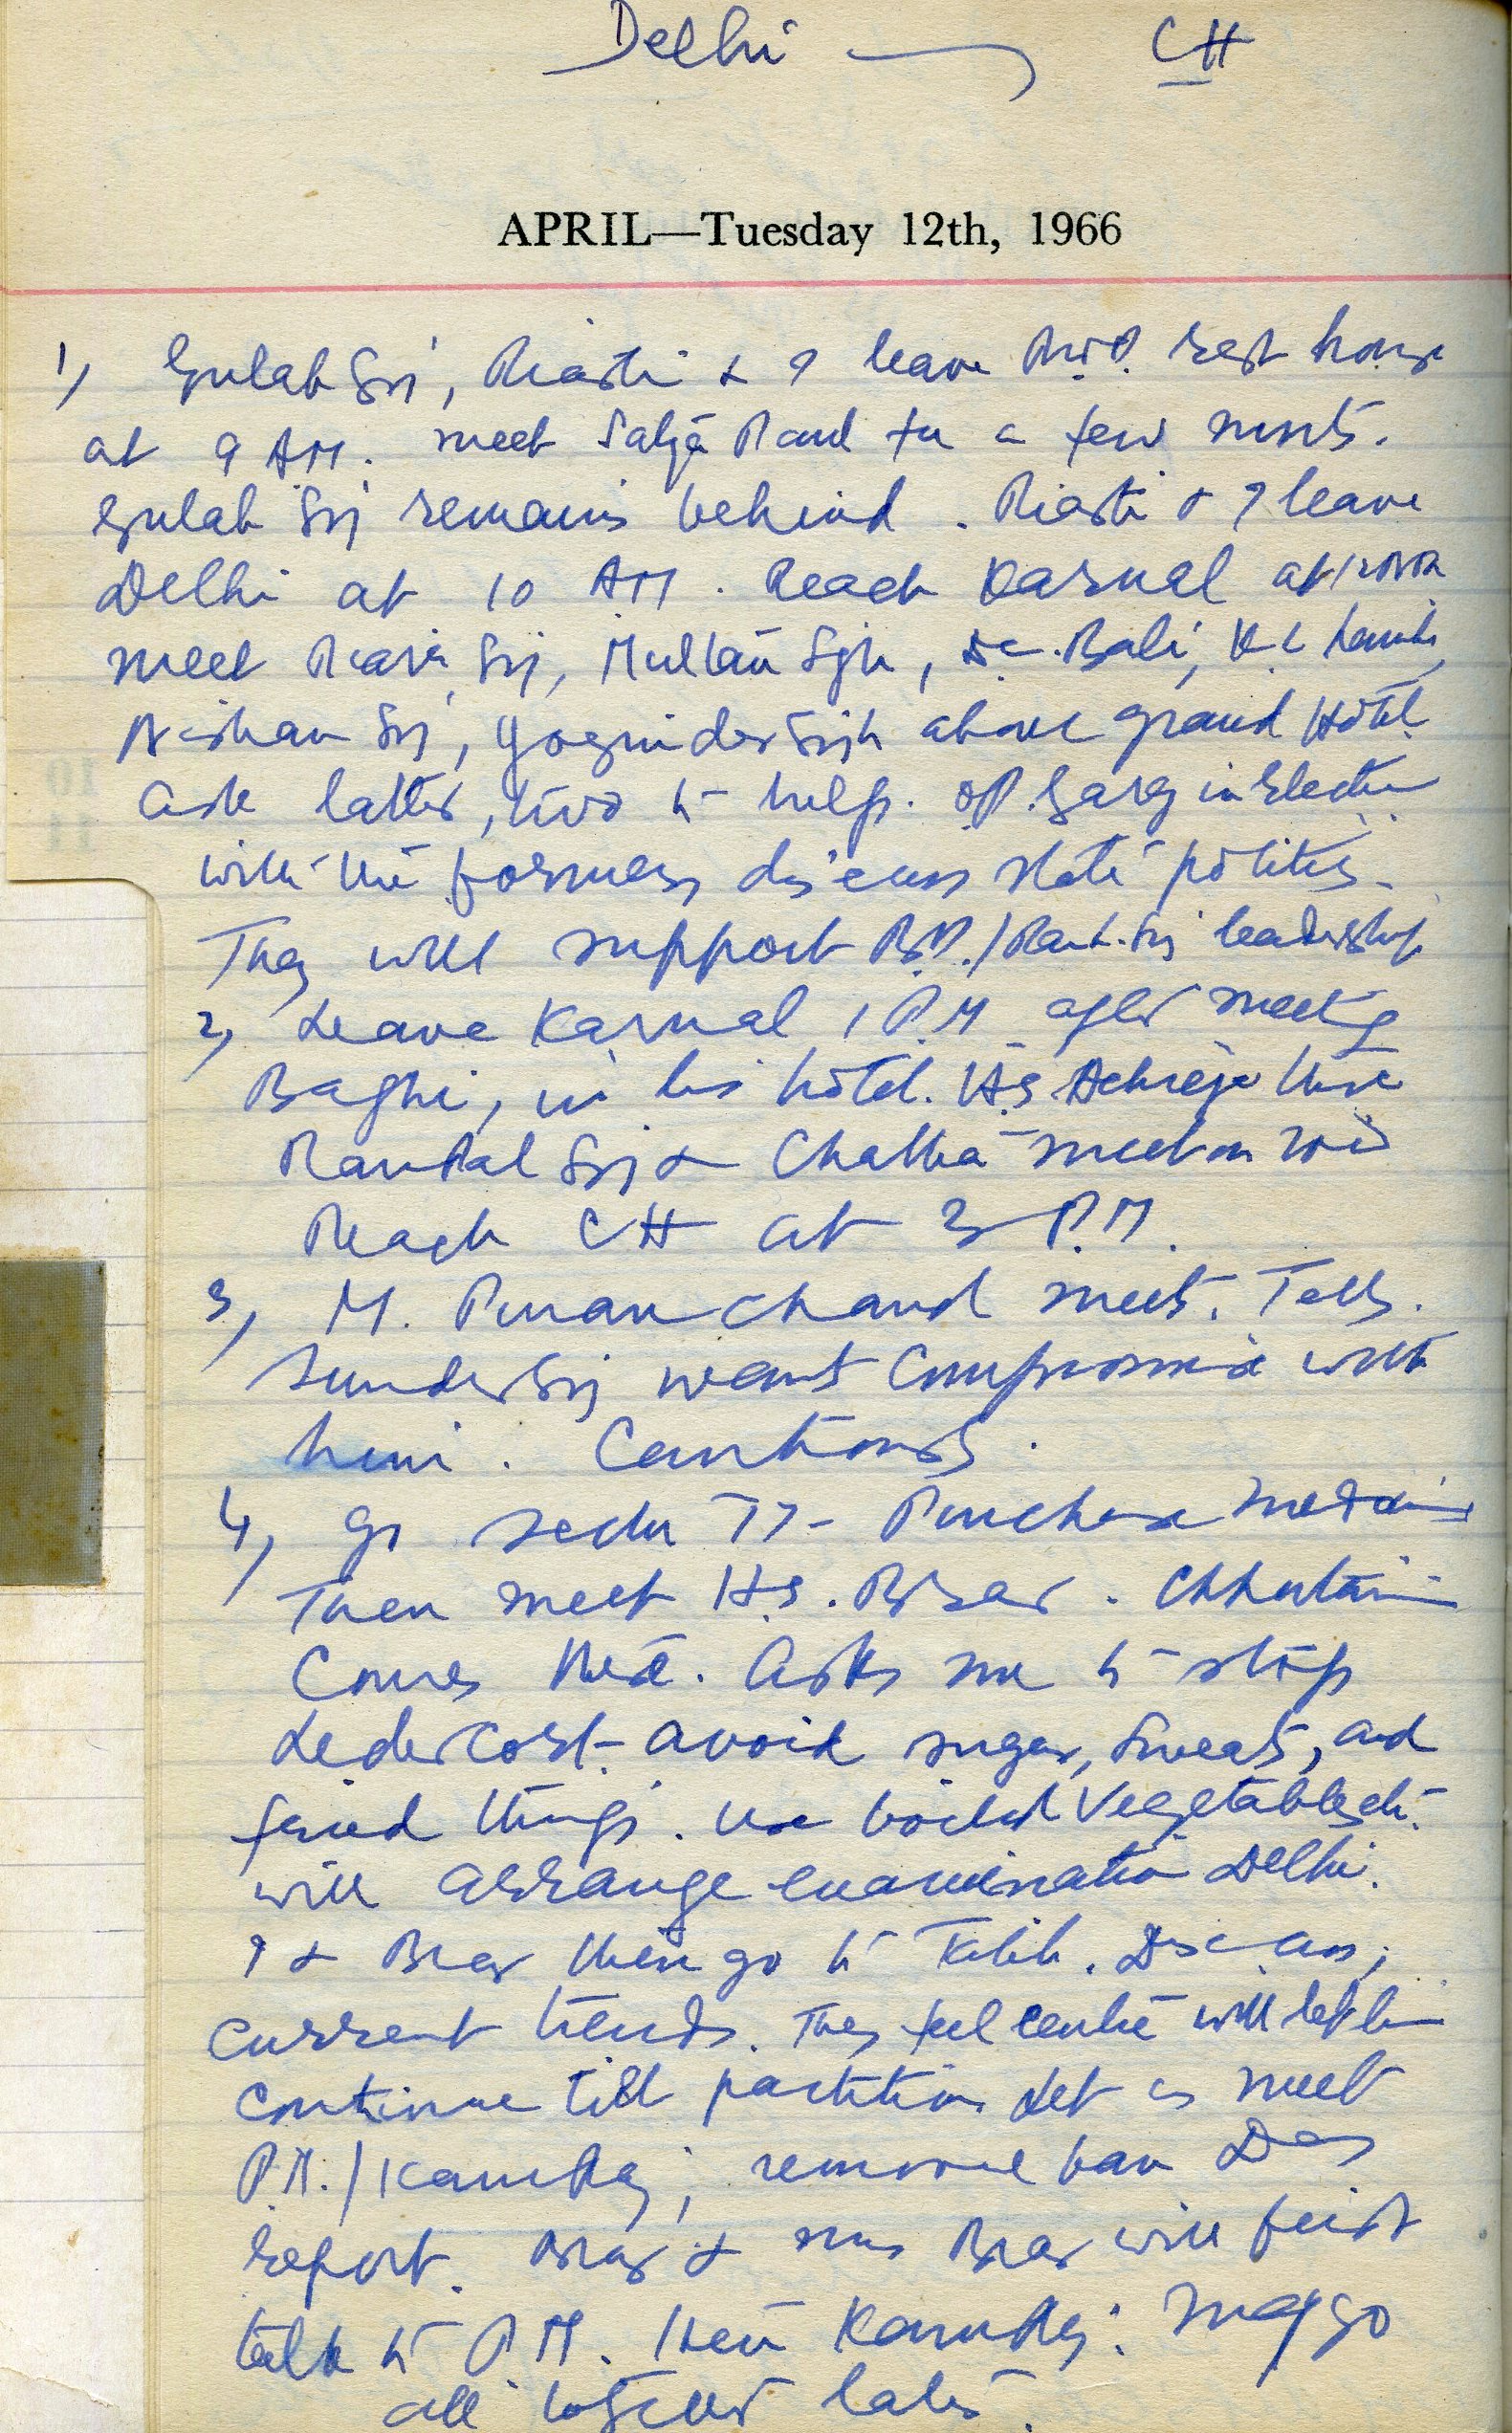 Delhi → CH
APRIL—Tuesday 12th, 1966
1) Gulab Sgh, Riasti & I leave rest house
at 9 AM. meet Satya for a few mnts.
Gulab Sgh remains behind. Riasti & I leave
Delhi at 10 AM. Reach Karnal at noon
meet Sgh, Multan Sgh, Bali,
Sgh, Yoginder Singh above Grand Hotel.
Ask latter, two to help. OP. Garg in Election
with the formers discuss state politics.
They will support leadership
2) Leave Karnal 1 P.M after meeting
Baghi, in his hotel. H.S. there
Sgh & Chatha meet on
Reach CH at 3 P.M.
3) M. Puran Chand meets. Tells.
Sunder Sgh wants compromise with
him. Cautions.
4) Go Sector 17 - Purchase
Then meet H.S. Brar. Chhuttani
comes there. Asks me to stop
Ledercort - avoid sugar, sweats, and
fried things. Use boiled vegetables etc.
will arrange examination Delhi.
I & Brar then go to Discuss,
current trends. They feel centre will let him
continue till partition. Let us meet
P.M./Kamraj, remove Das
report. Brar & Mrs Brar will first
talk to P.M. then Kamraj. May go
all together later.